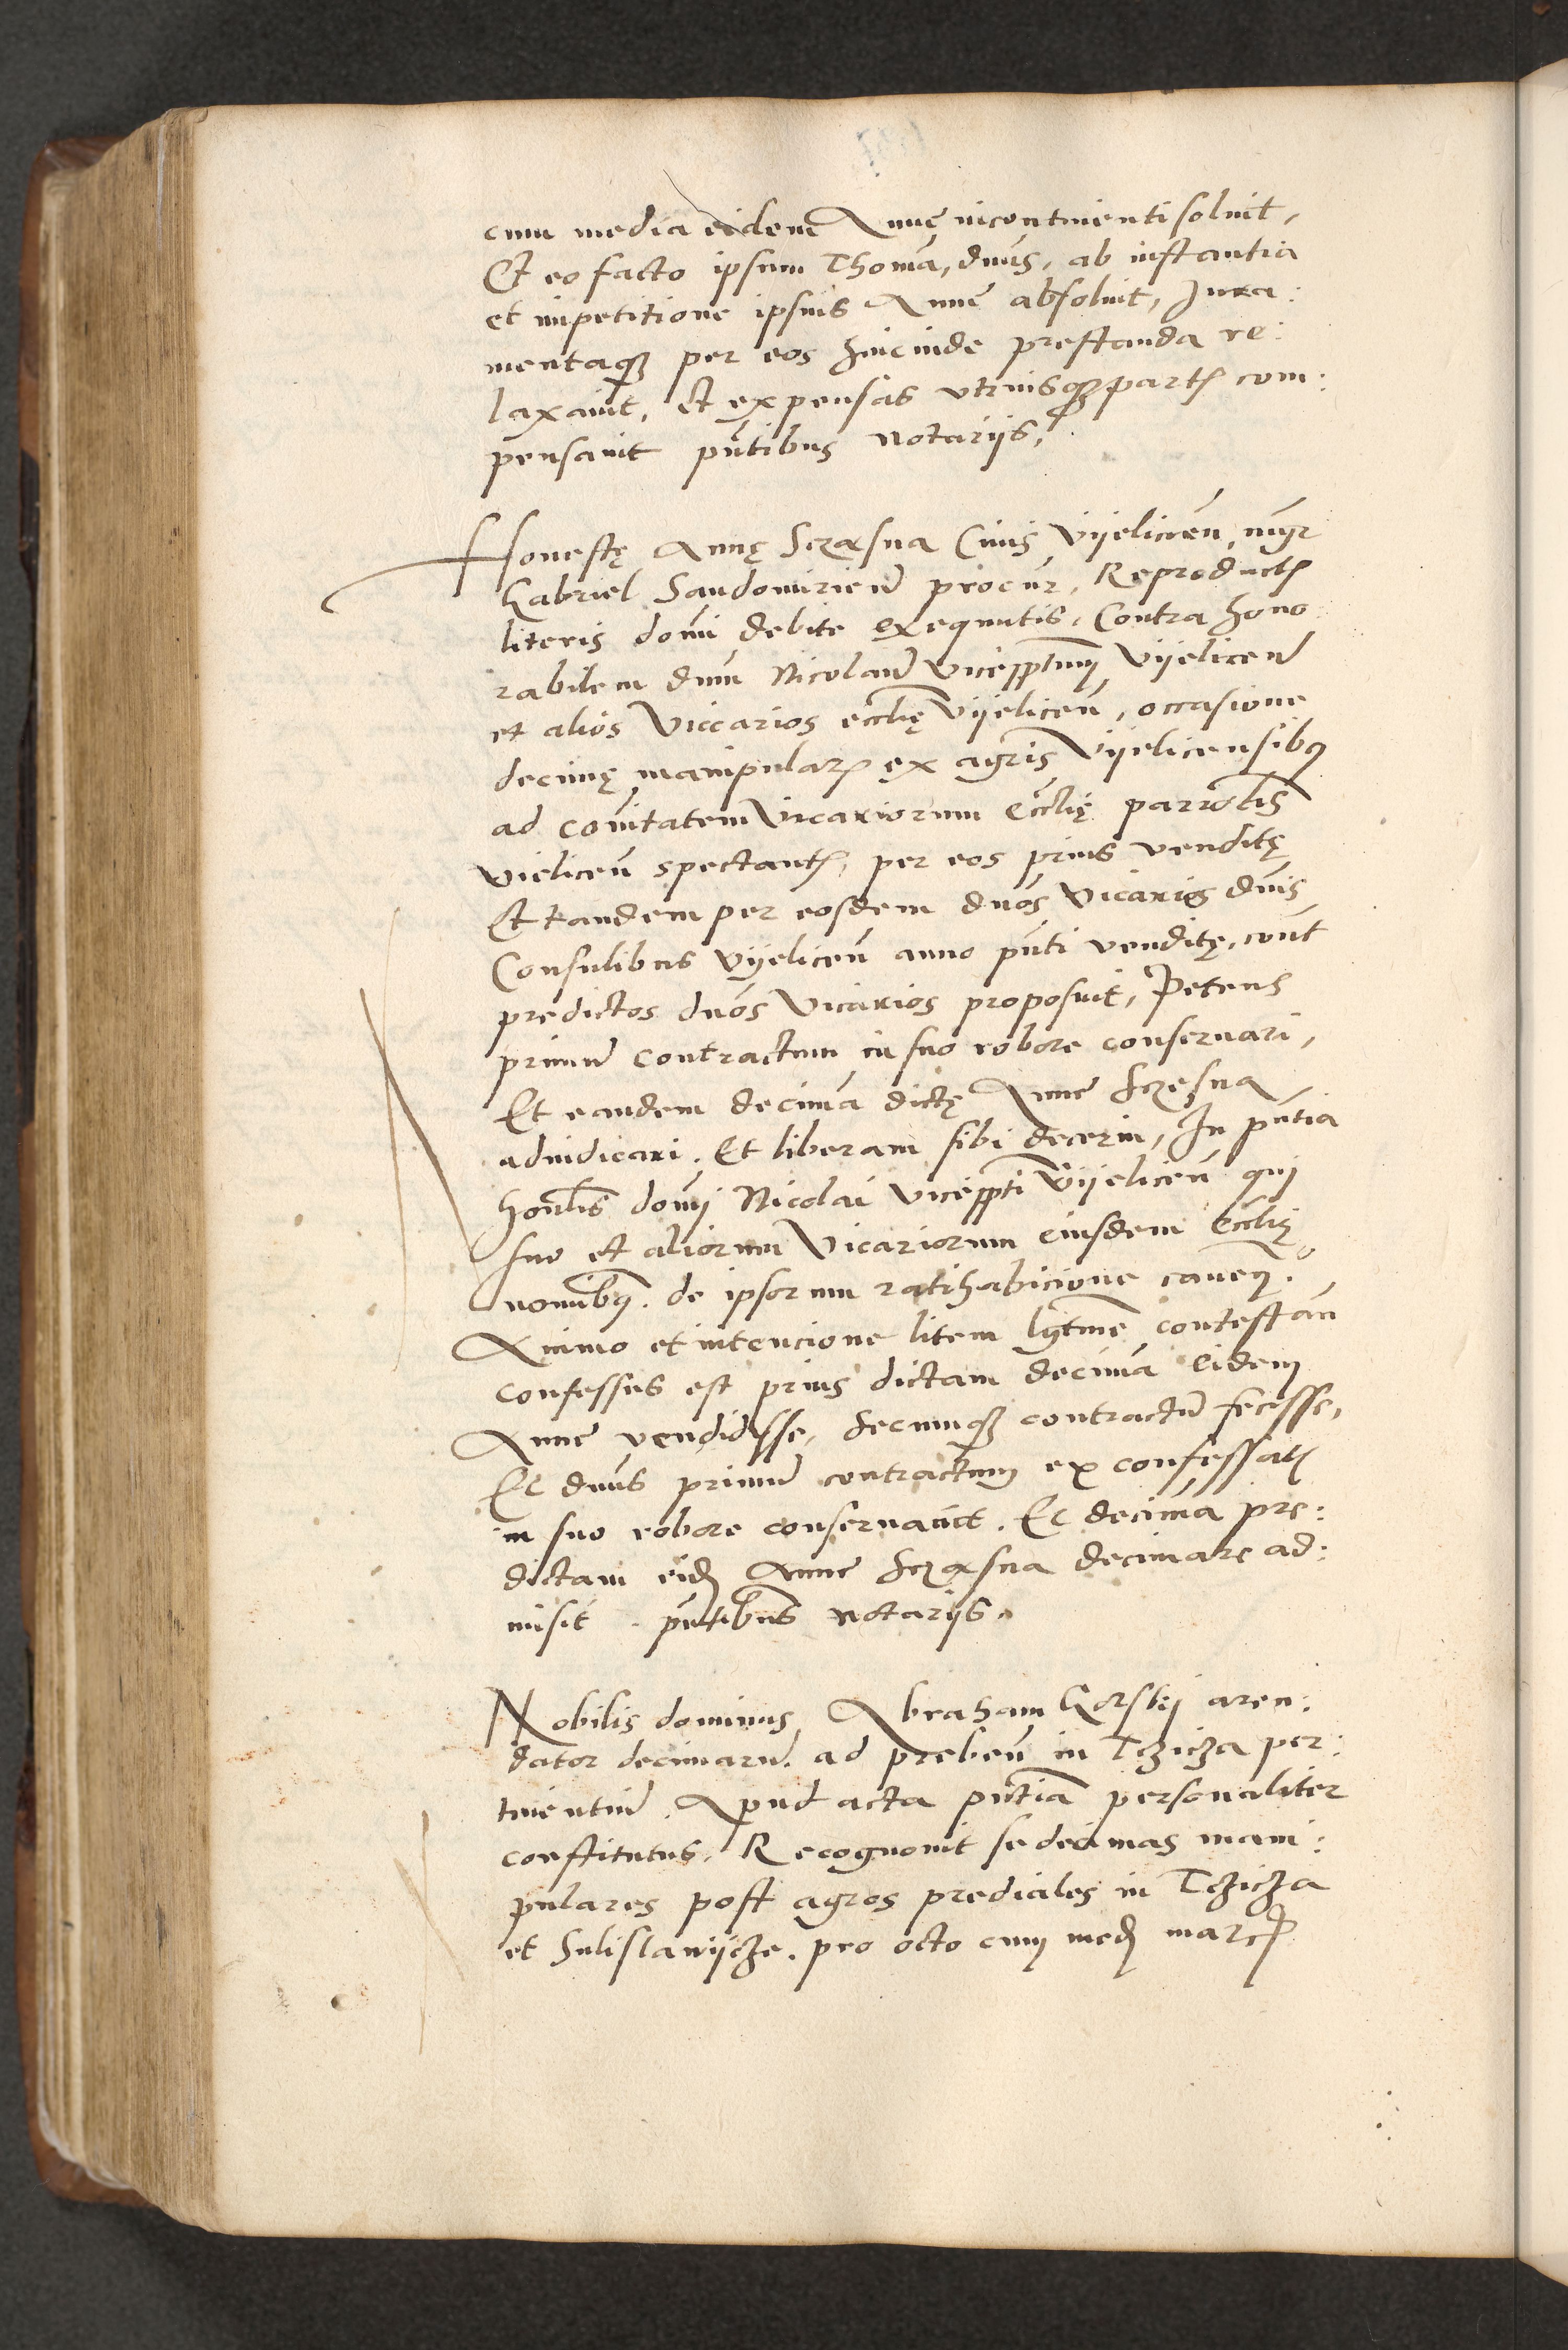 cum media eidem Annę incontinenti soluit,
Et eo facto ipsum Thomã, dnũs, ab instantia
et impetitione ipsius Anne absoluit, Jura:
mentaqȝ per eos hincinde prestanda re:
laxauit, Et expensas vtriusqȝ partꝭ com:
pensauit pñtibus Notarijs,
Honestę Annę Sczasna Ciuis Vijelicien̄, mgr̄
Gabriel Sandomirien̄ procur̄, Reproductꝭ
literis domi debite exequutis, Contra hono
rabilem dnm Nicolaū viceppt̄um Vijelicen̄
et alios Viccarios eccłię Vijelicen̄, occasione
decimę manipularꝭ ex agris Vijelicensibꝰ
ad com̄itatem Vicariorum eccłię parroc̄lis
Vielicen̄ spectantꝭ, per eos prius venditę
Et tandem per eosdem dnōs Vicarios dn̄is
Consulibus Vijelicen̄ anno pn̄ti venditę, cont̄
predictos dnōs Vicarios proposuit, Petens
primū contractum in suo robore conseruari,
Et eandem decimã dictę Anne Sczęsna
adiudicari. Et liberam sibi decerni, In pn̄tia
hon̄lis domi Nicolai viceppt̄i Vijelicen̄ qui
suo et aliorum Vicariorum eiusdem eccłię
nominibꝰ. de ipsorum ratihabicione cauenꝭ.
Animo et intencione litem lgt̄ime contestan̄
confessus est prius dictam decimã eidem
Anne vendidisse, secumqȝ contractū fecisse,
Et dnūs primū contractum ex confessatꝭ
in suo robore conseruauit. Et decimã pre:
dictam eidꝭ Anne Sczasna decimare ad:
misit. pn̄tibus notarijs.
Nobilis dominus Abraham Gorskij aren:
dator decimarū. ad preben̄ in Tczicza per:
tinentiū. Apud acta pn̄tia personaliter
constitutus, Recognouit se decimas mani:
pulares post agros prediales in Tczicza
et Sulislawijcze. pro octo cum medꝭ marcꝭ